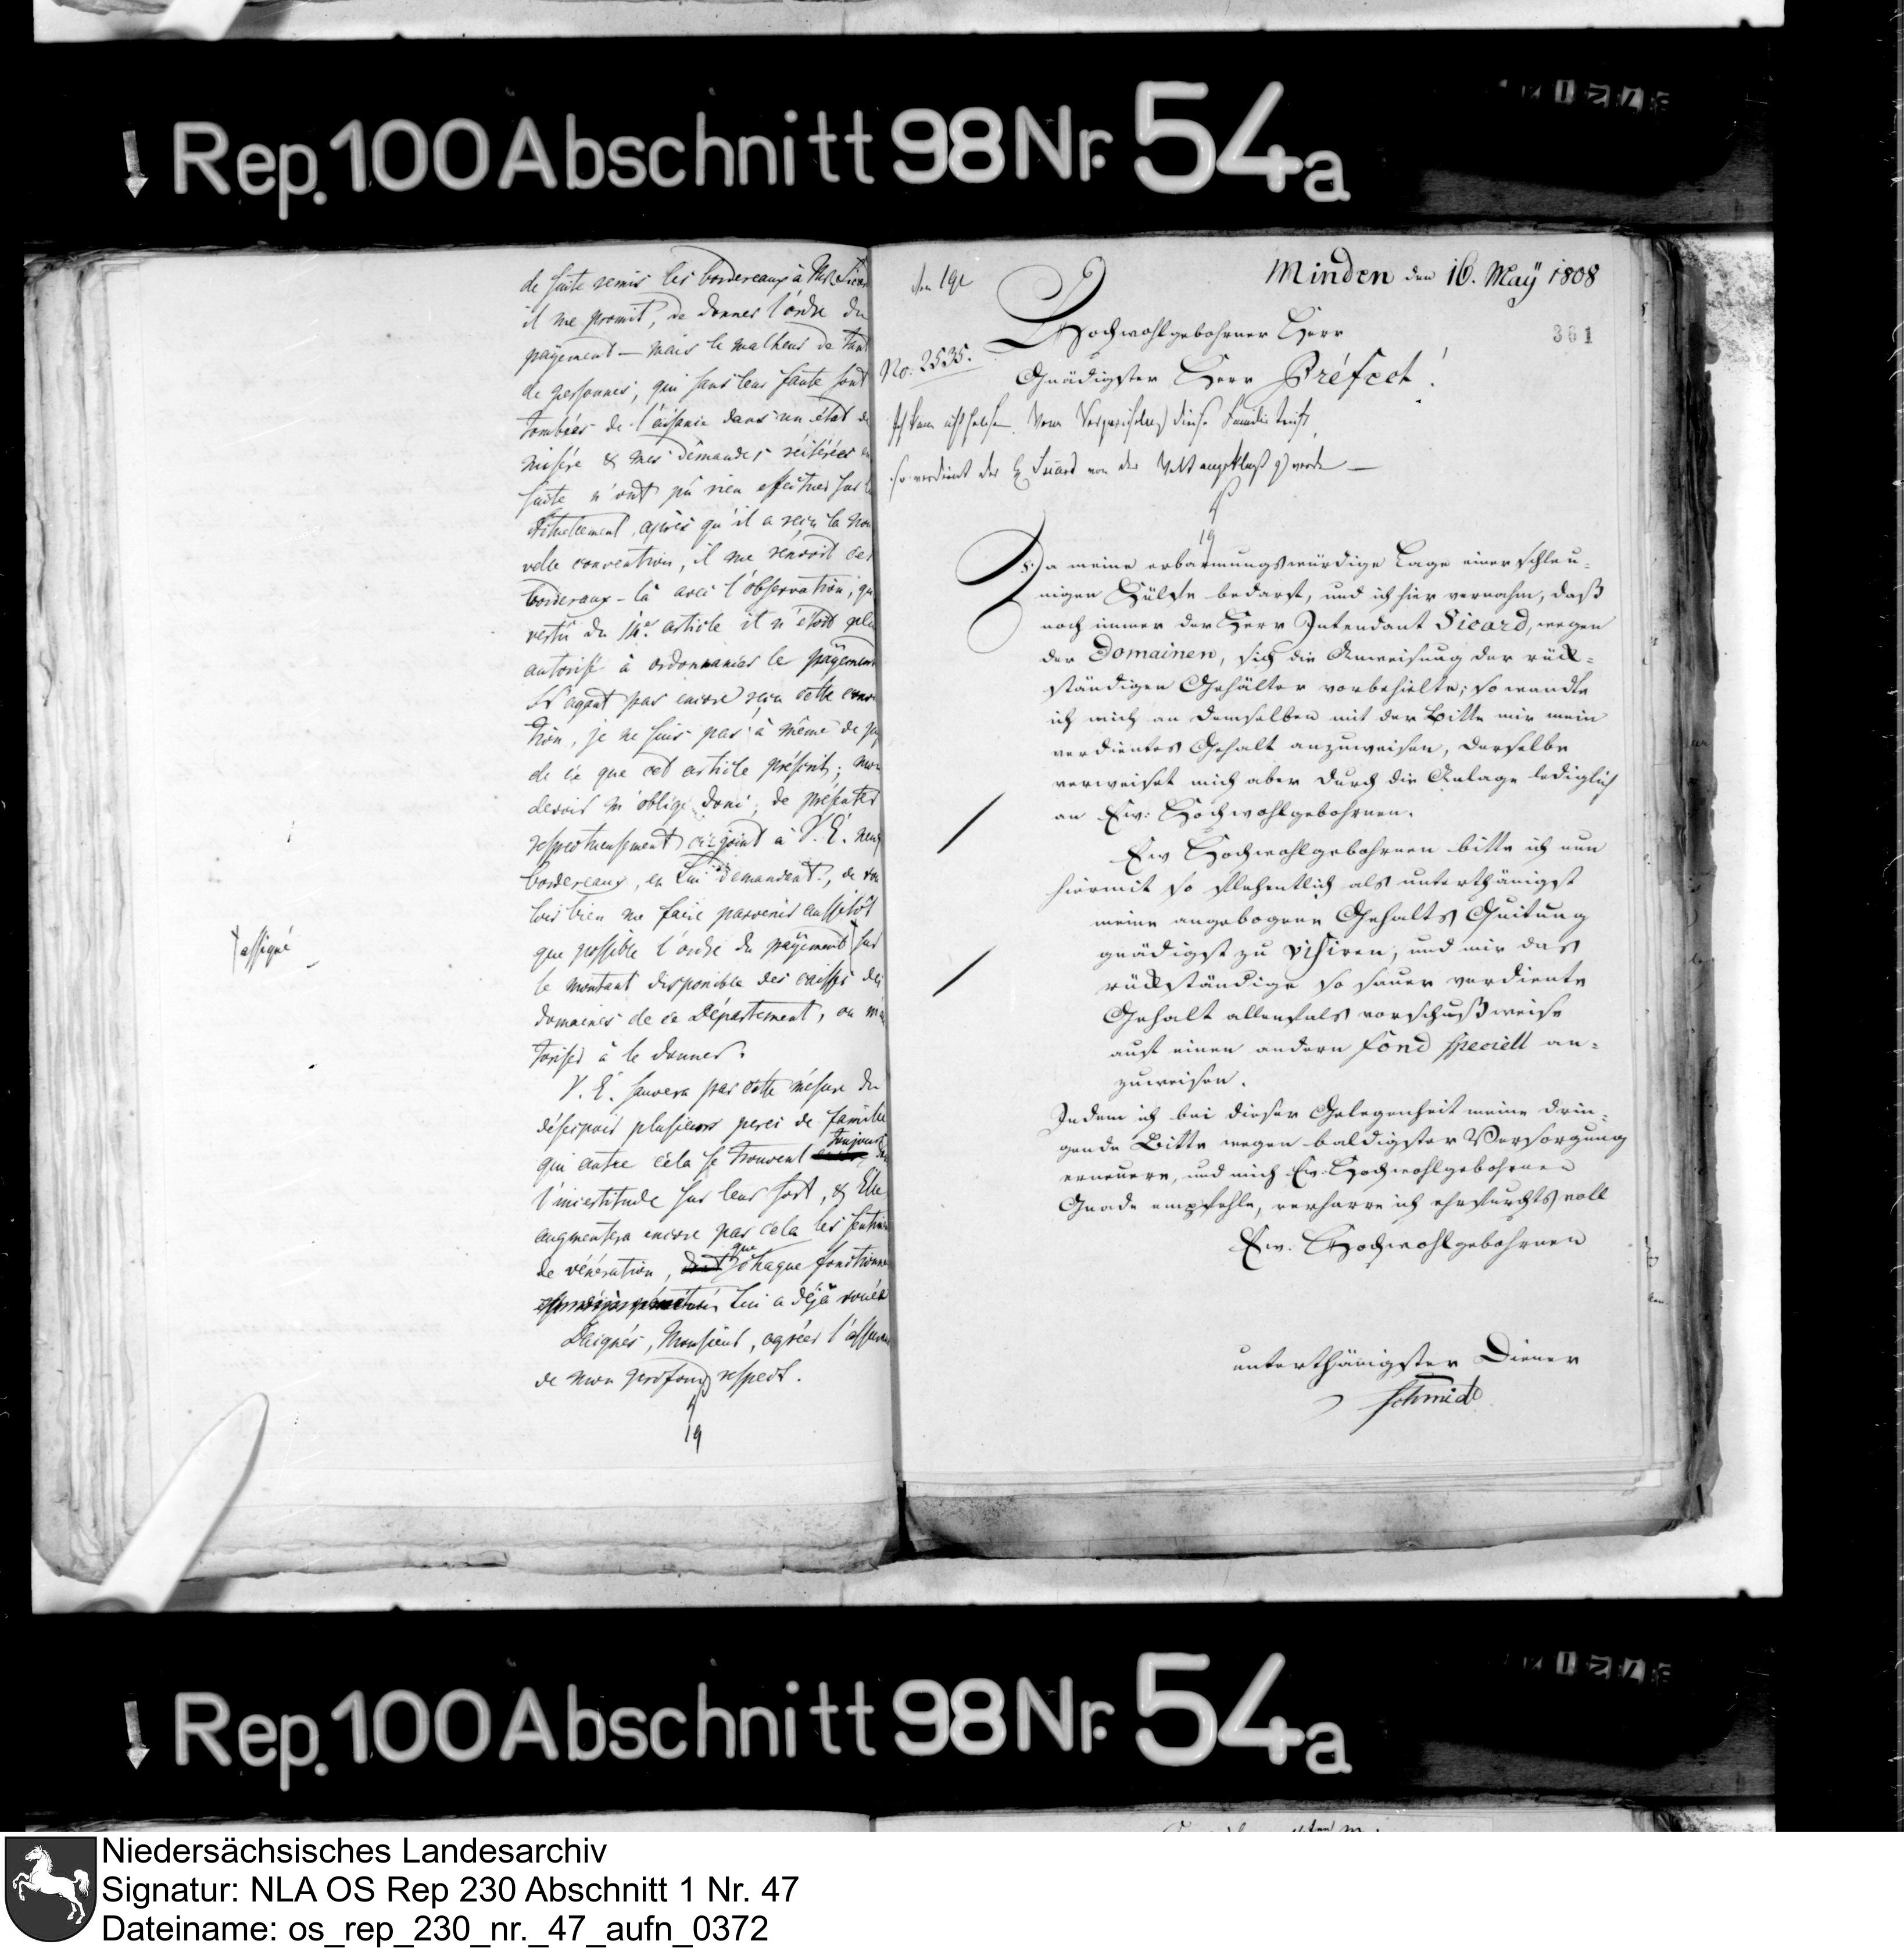 Rep. 100 Abschnitt 98 Nr. 54a
de suite remis les bordereaux à Mr. Sicard
il me promit, de donner l'ordre du
payement — mais le malheur de tant
de personnes, qui sans leur faute sont
tombées de l'aisance dans un état de
misère & mes demandes réitérées en
suite n'ont pû rien effectuer sur lui
Actuellement, après qu'il a reçu la nou
velle convention, il me renvoit ces
bordereaux-là avec l'observation, qu'en
vertu du 14e. article il n'étoit plus
autorisé à ordonnancer le payement
N'ayant pas encore reçu cette conven
tion, je ne suis pas à même de juger
de ce que cet article préscrit; mon
devoir m'oblige donc, de présenter
respectueusement ci-joint à V. E. neuf
bordereaux, en Lui demandant, de vou
loir bien me faire parvenir aussitôt
que possible l'ordre du payement sur
assigné
le montant disponible des caisses des
domaines de ce Département, ou m'au
toriser à le donner.
V. E. sauvera par cette mésure du
désespoir plusieurs peres de famille
qui outre cela se trouvent toujours dans
l'incertitude sur leur sort, & Elle
augmentera encore par cela les sentimens
de vénération, que chaque fonctionnaire
Lui a déjà voués
Daignés, Monsieur, agréer l'assurance
de mon profond respect.
19
Minden den 16. May 1808
361
No. 2535.
Hochwohlgebohrner Herr
Gnädigster Herr Préfect!
Ich kann nicht helfen. Wenn Verzweifelung diese Familie trift,
so verdient der H. Sicard von der Welt angeklagt zu werden —
19
Da meine erbarmungswürdige Lage einer schleu-
nigen Hülfe bedarf, und ich hier vernahm, daß
noch immer der Herr Intendant Sicard, wegen
der Domainen, sich die Anweisung der rück-
ständigen Gehälter vorbehielte; so wandte
ich mich an demselben mit der Bitte mir mein
verdientes Gehalt anzuweisen, derselbe
verweiset mich aber durch die Anlage lediglich
an Ew: Hochwohlgebohrnen.
Ew Hochwohlgebohrnen bitte ich nun
hiermit so flehentlich als unterthänigst
meine angebogene Gehalts Quitung
gnädigst zu visiren, und mir das
rückständige so sauer verdiente
Gehalt allenfals vorschußweise
auf einen andern fond speciell an-
zuweisen.
Indem ich bei dieser Gelegenheit meine drin-
gende Bitte wegen baldigster Versorgung
erneuere, und mich Ew. Hochwohlgebohrnen
Gnade empfehle, verharre ich ehrfurchtsvoll
Ew. Hochwohlgebohrnen
unterthänigster Diener
Schmidt
Rep. 100 Abschnitt 98 Nr. 54a
Niedersächsisches Landesarchiv
Signatur: NLA OS Rep 230 Abschnitt 1 Nr. 47
Dateiname: os_rep_230_nr._47_aufn_0372